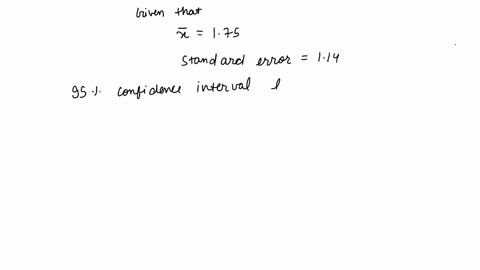 Given that
x̄ = 1.75
Standard error = 1.14
95 %. confidence interval